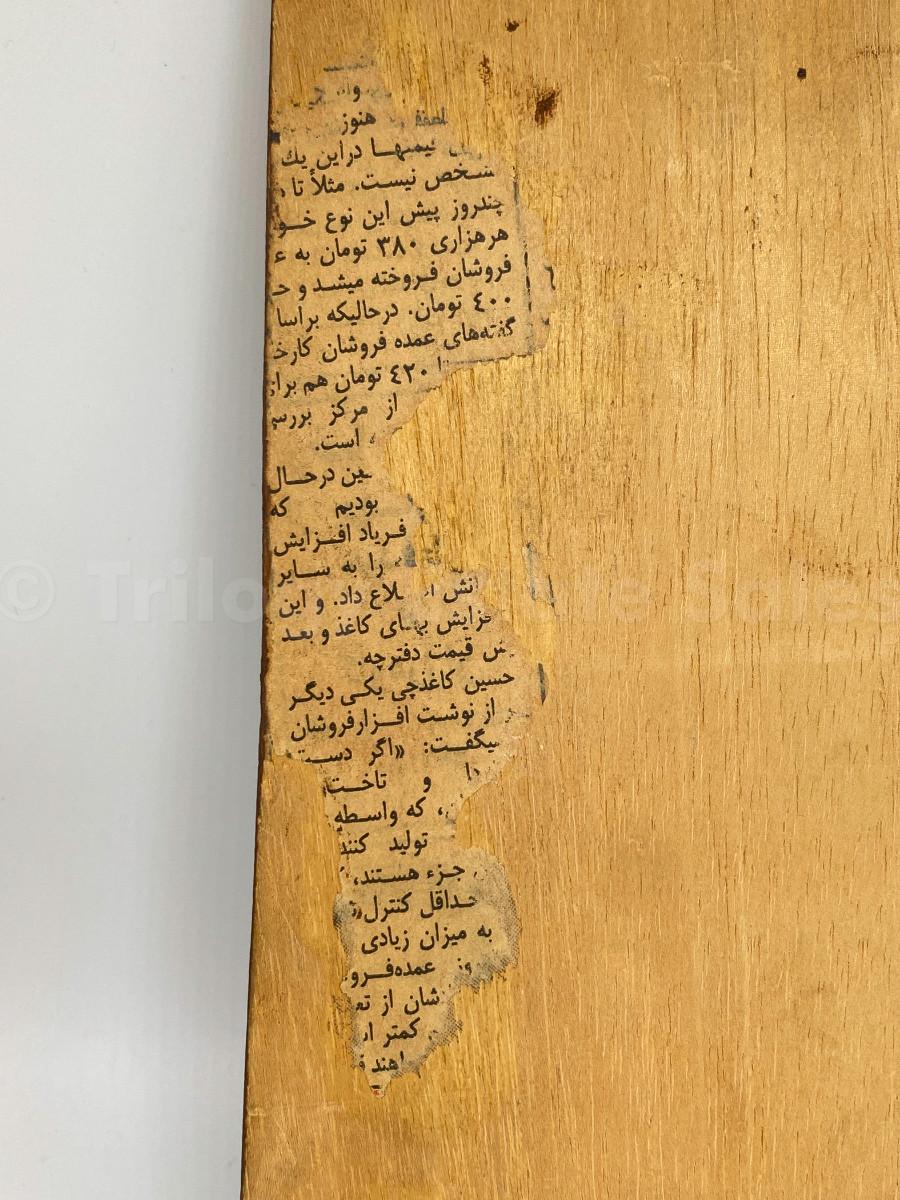 هنوز
دراین یك
شخص نیست. مثلاً تا
چندروز پیش این نوع خو
هرهزاری ۳۸۰ تومان به ع
فروشان فروخته میشد و حـ
۴۰۰ تومان. درحالیکه براسا
گفته‌های عمده فروشان کارخـ
۴۲۰ تومان هم برای
از مرکز بررسی
است.
درحال
بودیم که
فریاد افزایش
را به سایر
داد. و این
بهای کاغذ و بعد
قیمت دفترچه.
حسین کاغذچی یکی دیگر
از نوشت افزارفروشان
میگفت: «اگر دست
و تاخت
که واسطه
تولید کنند
جزء هستند،
حداقل کنترل
به میزان زیادی
عمده‌فرو
شان از تعـ
کمتر
© Trilogy White Sales